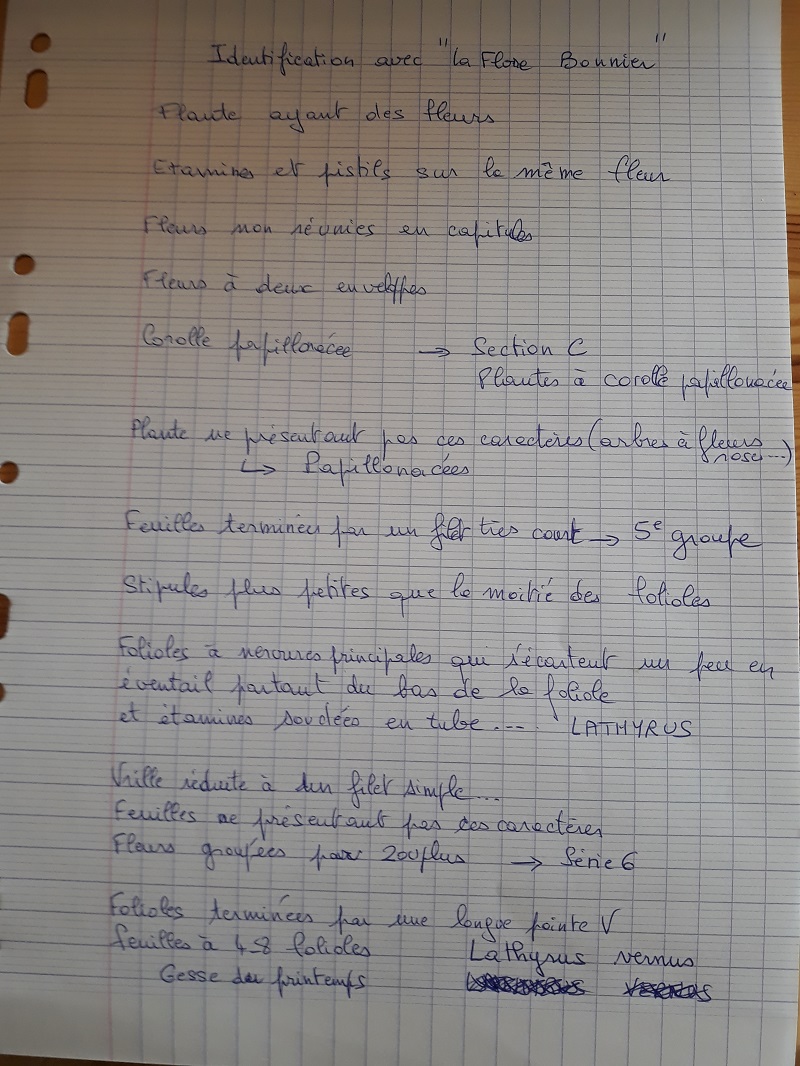 Identification avec "la Flore Bonnier"
Plante ayant des fleurs
Etamines et pistils sur la même fleur
Fleurs non réunies en capitules
Fleurs à deux enveloppes
Corolle papilionacée → Section C
Plantes à corolle papillonacée
Plante ne présentant pas ces caractères (arbres à fleurs
roses...)
↳ Papillonacées
Feuilles terminées par un filet très court → 5e groupe
Stipules plus petites que la moitié des folioles
Folioles à nervures principales qui s'écartent un peu en
éventail partant du bas de la foliole
et étamines soudées en tube.... LATHYRUS
Vrille réduite à un filet simple...
Feuilles ne présentant pas ces caractères
Fleurs groupées par 2 ou plus → Série 6
Folioles terminées par une longue pointe V
feuilles à 4-8 folioles Lathyrus vernus
Gesse du printemps